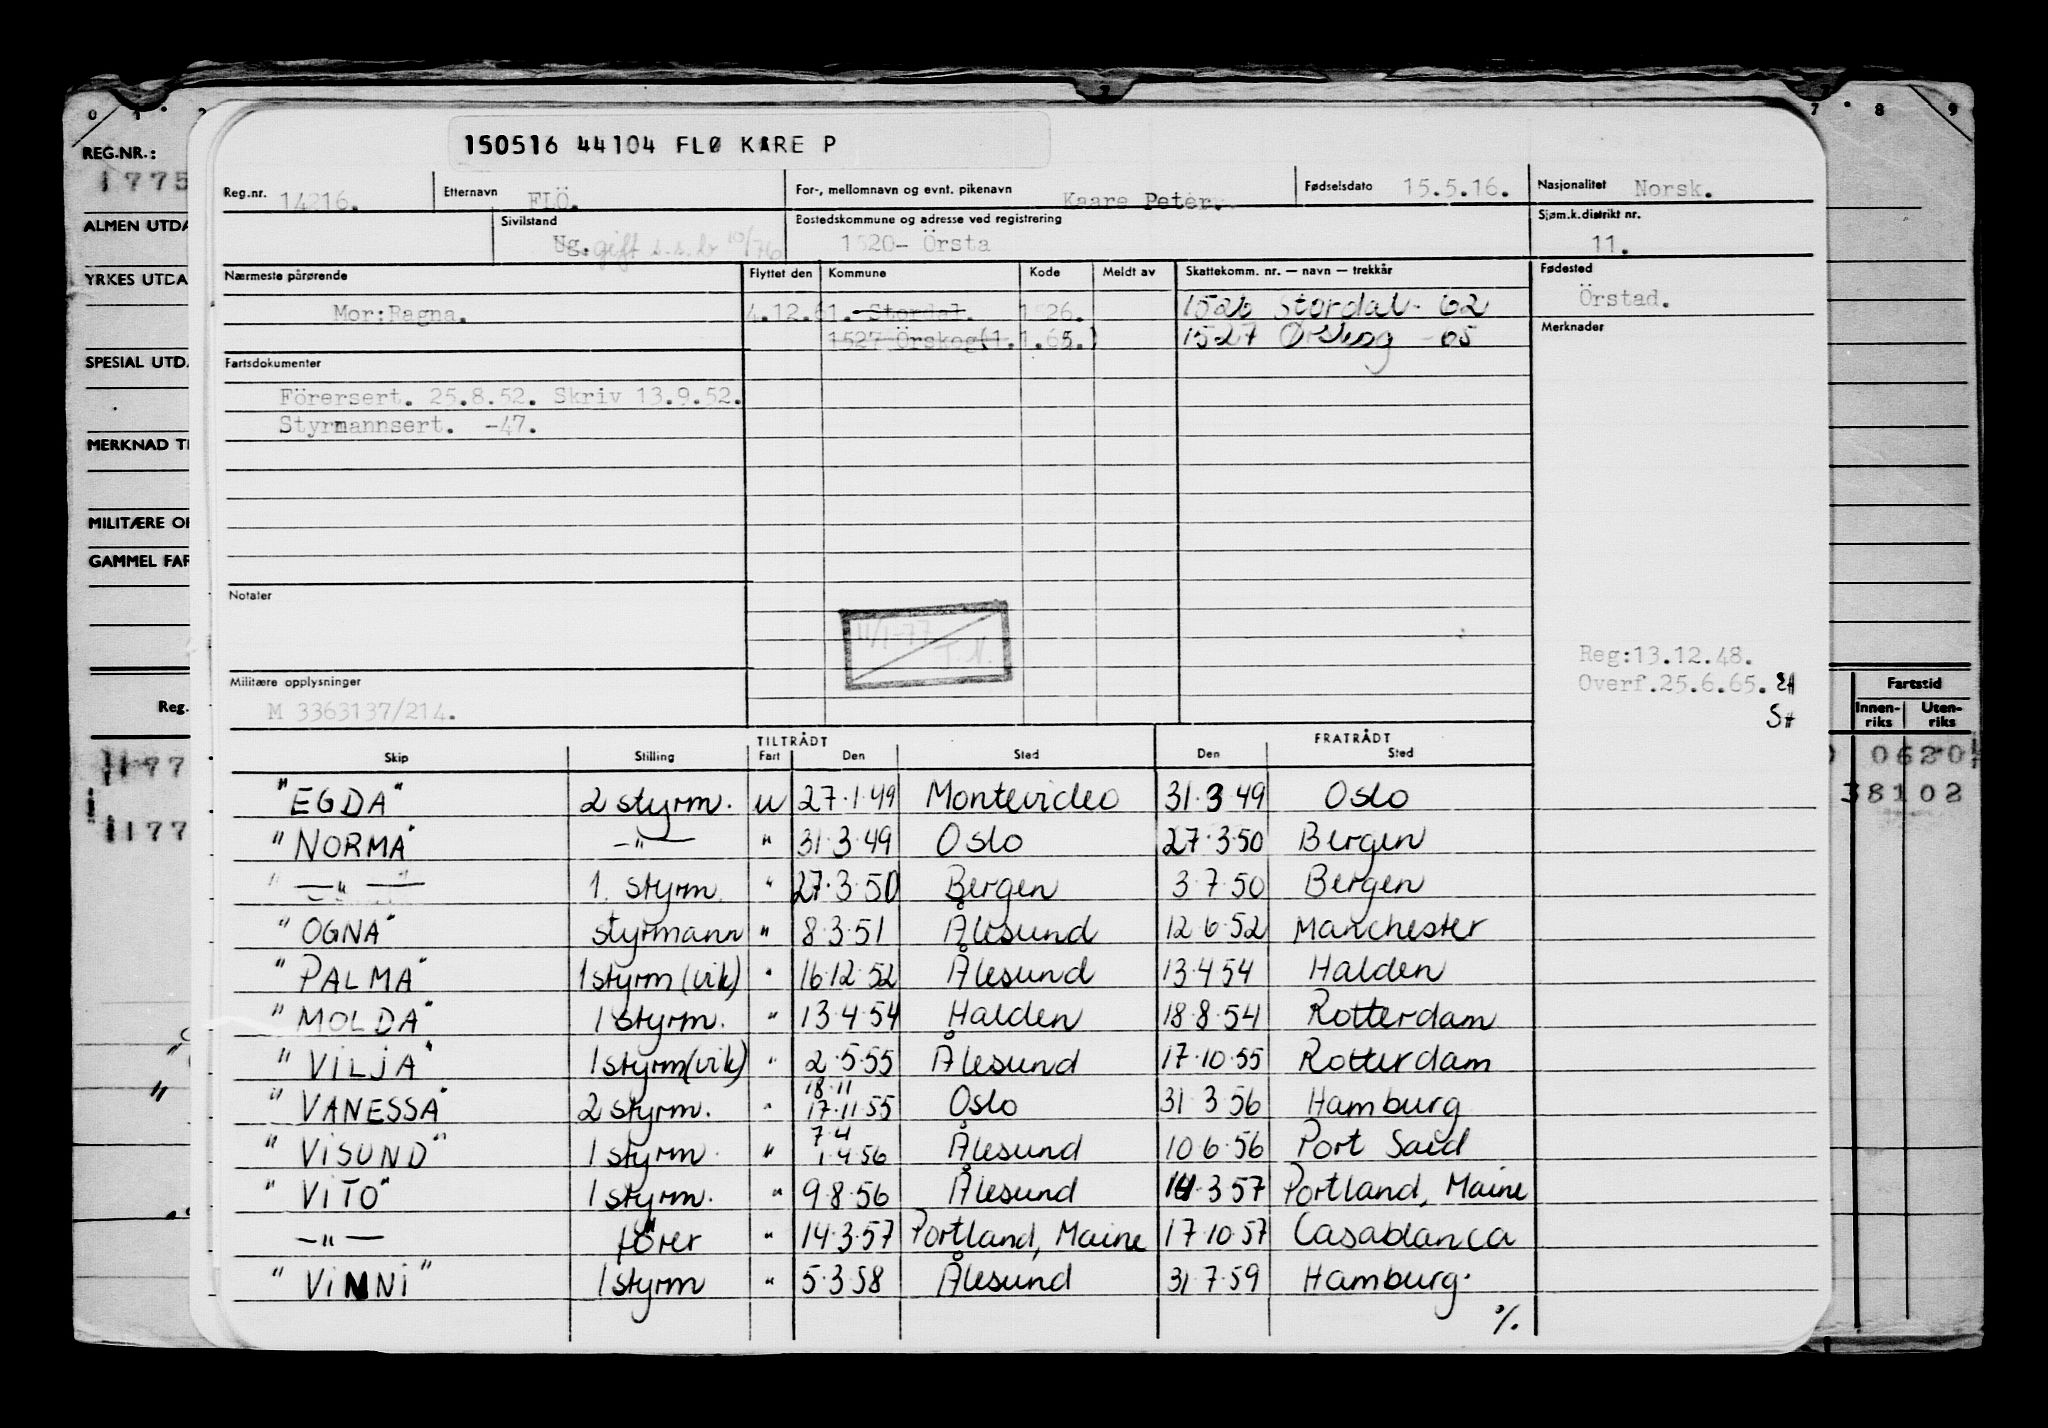 0 1 2 7 7 8 9
150516 44104 FLØ KARE P
REG.NR.:
1775
Reg.nr. 14216. Etternavn FLÖ. For-, mellomnavn og evnt. pikenavn Kaare Peter. Fødselsdato 15.5.16. Nasjonalitet Norsk.
ALMEN UTDA
Sivilstand Ug. gift s.s.br 10/76 Bostedskommune og adresse ved registrering 1520- Örsta Sjøm.k.distrikt nr. 11.
YRKES UTDA
Nærmeste pårørende Flyttet den Kommune Kode Meldt av Skattekomm. nr. — navn — trekkår Fødested
Mor:Ragna. 4.12.61. Stordal. 1526. 1526 Stordal - 62 Örstad.
1527 Örskog(1.1.65.) 1527 Ørskog - 65 Merknader
SPESIAL UTD.
Fartsdokumenter
Förersert. 25.8.52. Skriv 13.9.52.
Styrmannsert. -47.
MERKNAD TI
MILITÆRE OP
GAMMEL FAR
Notater
11/1-77
T.N.
Reg:13.12.48.
Militære opplysninger Overf.25.6.65.
M 3363137/214.
Reg. Fartstid
Innen-riks Uten-riks
TILTRÅDT FRATRÅDT
Skip Stilling Fart Den Sted Den Sted
"EGDA" 2 styrm. u 27.1.49 Montevideo 31.3 49 Oslo
"NORMA" —"— " 31.3.49 Oslo 27.3.50 Bergen
" —"— " 1. styrm. " 27.3.50 Bergen 3.7.50 Bergen
"OGNA" styrmann " 8.3.51 Ålesund 12 6.52 Manchester
"PALMA" 1 styrm (vik) " 16.12.52 Ålesund 13.4 54 Halden
"MOLDA" 1 styrm. " 13.4.54 Halden 18.8.54 Rotterdam
"VILJA" 1 styrm(vik) " 2.5.55 Ålesund 17.10.55 Rotterdam
18.11
"VANESSA" 2 styrm. " 17.11 55 Oslo 31 3 56 Hamburg
7.4
"VISUND" 1 styrm. " 1.4 56 Ålesund 10 6.56 Port Said
"VITO" 1 styrm. " 9.8.56 Ålesund 14.3 57 Portland, Maine
—"— förer " 14.3.57 Portland, Maine 17.10.57 Casablanca
"VINNI" 1 styrm " 5.3.58 Ålesund 31.7.59 Hamburg.
%.
177 0620
177 38102